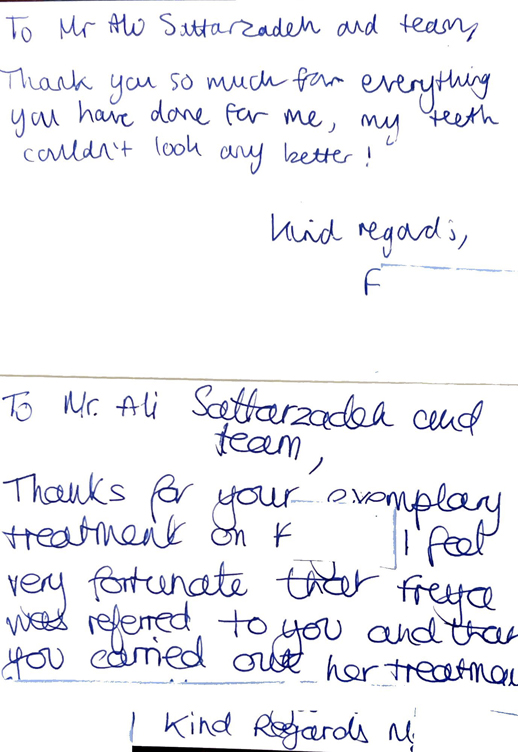 To Mr Ali Sattarzadeh and team,
Thank you so much for everything
you have done for me, my teeth
couldn't look any better!
Kind regards,
F
To Mr. Ali Sattarzadeh and
team,
Thanks for your exemplary
treatment on F
I feel
very fortunate that Freya
was referred to you and that
you carried out her treatmen
Kind Regards M